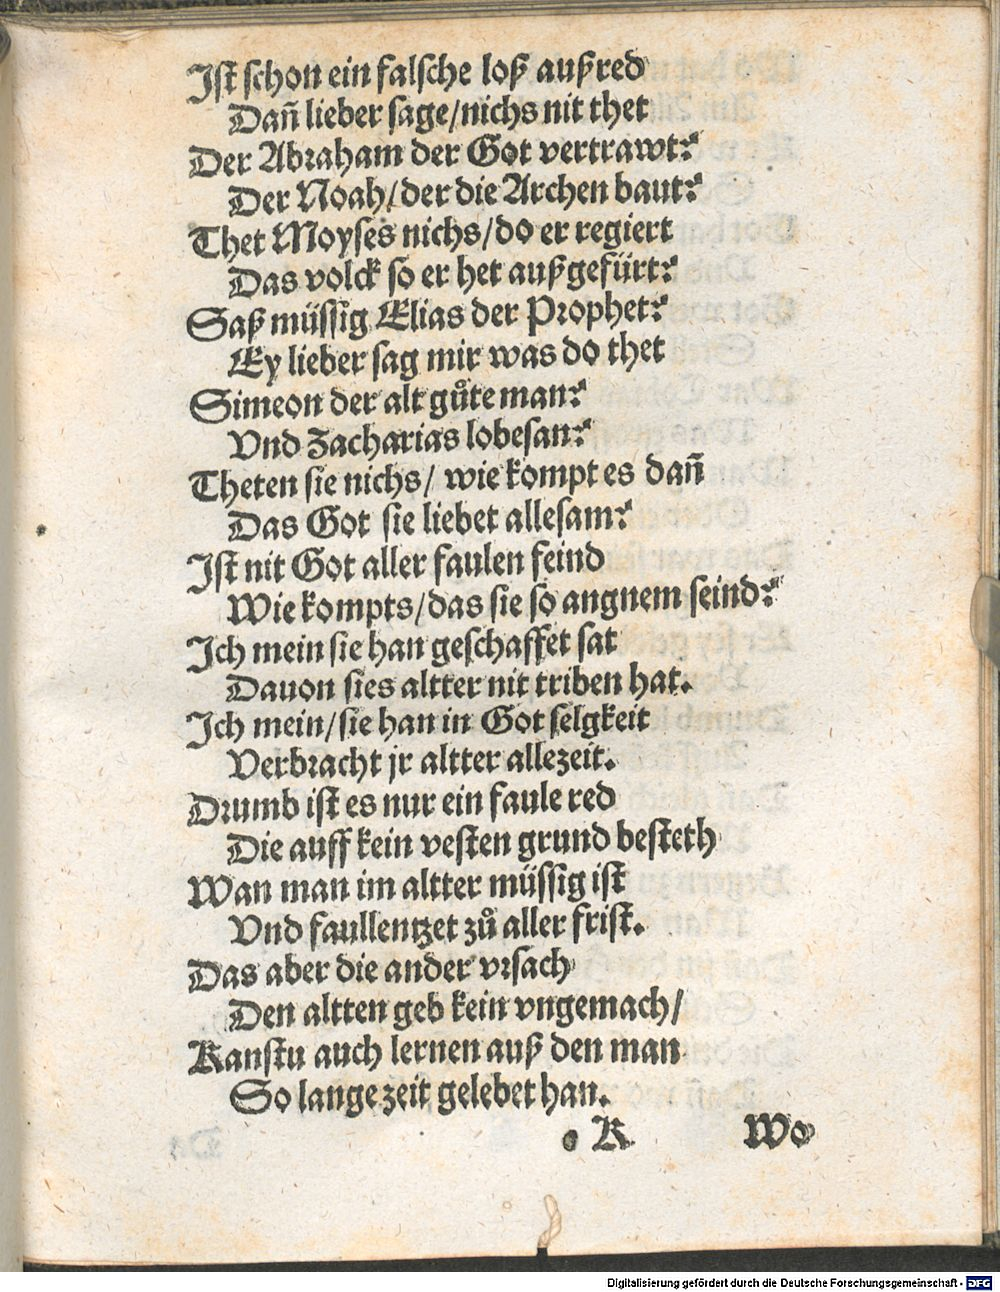 Ist schon ein falsche loß außred
Dañ lieber sage/nichs nit thet
Der Abraham der Got vertrawt?
Der Noah/der die Archen baut?
Thet Moyses nichs/do er regiert
Das volck so er het außgefürt?
Saß müssig Elias der Prophet?
Ey lieber sag mir was do thet
Simeon der alt gůte man?
Vnd Zacharias lobesan?
Theten sie nichs/ wie kompt es dañ
Das Got sie liebet allesam?
Ist nit Got aller faulen feind
Wie kompts/das sie so angnem seind?
Ich mein sie han geschaffet sat
Dauon sies altter nit triben hat.
Ich mein/sie han in Got selgkeit
Verbracht jr altter allezeit.
Drumb ist es nur ein faule red
Die auff kein vesten grund besteth
Wan man im altter müssig ist
Vnd faullentzet zů aller frist.
Das aber die ander vrsach
Den altten geb kein vngemach/
Kanstu auch lernen auß den man
So lange zeit gelebet han.
e K Wo
Digitalisierung gefördert durch die Deutsche Forschungsgemeinschaft - DFG